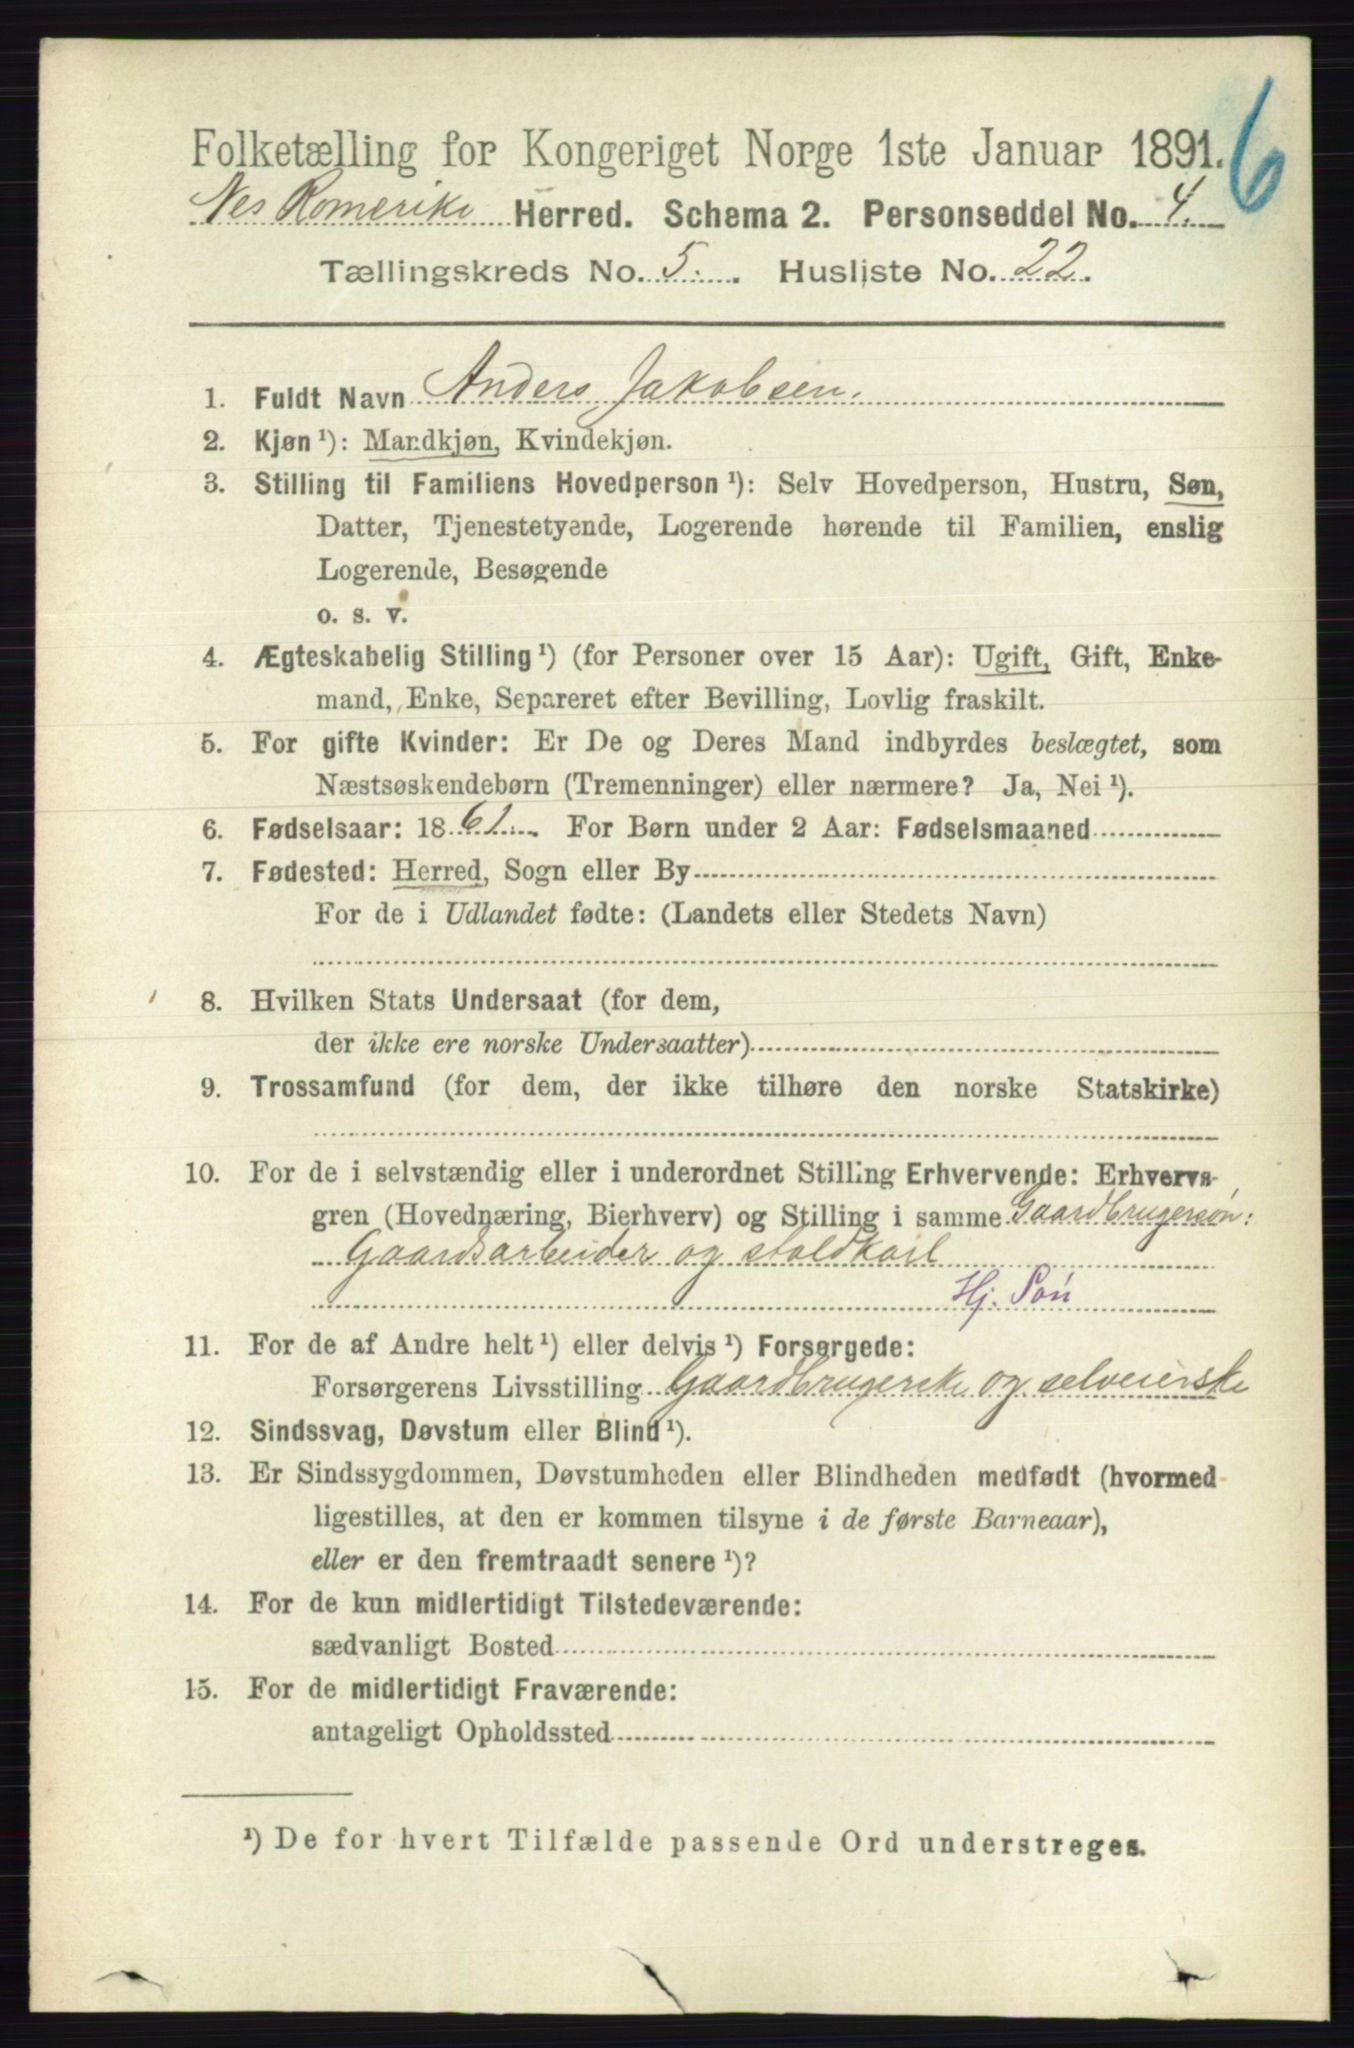 6
Folketælling for Kongeriget Norge 1ste Januar 1891.
Nes Romerike Herred. Schema 2. Personseddel No. 4.
Tællingskreds No. 5. Husliste No. 22.
1. Fuldt Navn Anders Jakobsen.
2. Kjøn ¹): Mandkjøn, Kvindekjøn.
3. Stilling til Familiens Hovedperson ¹): Selv Hovedperson, Hustru, Søn,
Datter, Tjenestetyende, Logerende hørende til Familien, enslig
Logerende, Besøgende
o. s. v.
4. Ægteskabelig Stilling ¹) (for Personer over 15 Aar): Ugift, Gift, Enke-
mand, Enke, Separeret efter Bevilling, Lovlig fraskilt.
5. For gifte Kvinder: Er De og Deres Mand indbyrdes beslægtet, som
Næstsøskendebørn (Tremenninger) eller nærmere? Ja, Nei ¹).
6. Fødselsaar: 1861. For Børn under 2 Aar: Fødselsmaaned
7. Fødested: Herred, Sogn eller By
For de i Udlandet fødte: (Landets eller Stedets Navn)
8. Hvilken Stats Undersaat (for dem,
der ikke ere norske Undersaatter)
9. Trossamfund (for dem, der ikke tilhøre den norske Statskirke)
10. For de i selvstændig eller i underordnet Stilling Erhvervende: Erhvervs-
gren (Hovednæring, Bierhverv) og Stilling i samme Gaardbrugersøn:
Gaardsarbeider og staldkarl
Hj. Søn
11. For de af Andre helt ¹) eller delvis ¹) Forsørgede:
Forsørgerens Livsstilling Gaardbrugerske og selveierske
12. Sindssvag, Døvstum eller Blind ¹).
13. Er Sindssygdommen, Døvstumheden eller Blindheden medfødt (hvormed
ligestilles, at den er kommen tilsyne i de første Barneaar),
eller er den fremtraadt senere ¹)?
14. For de kun midlertidigt Tilstedeværende:
sædvanligt Bosted
15. For de midlertidigt Fraværende:
antageligt Opholdssted
¹) De for hvert Tilfælde passende Ord understreges.